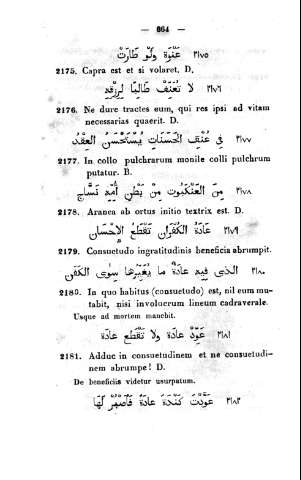 — 664 —
٢١٧٥ عَنْزَة وَلَوْ طَارَتْ
2175. Capra est et si volaret. D.
٢١٧٦ لَا تُعَنِّفْ طَالِبًا لِرِزْقِهِ
2176. Ne dure tractes eum, qui res ipsi ad vitam
necessarias quaerit. D.
٢١٧٧ فِي عُنُقِ الْحَسْنَاءِ يُسْتَحْسَنُ الْعِقْدُ
2177. In collo pulchrarum monile colli pulchrum
putatur. B.
٢١٧٨ مِنَ الْعَنْكَبُوتِ مِنْ بَطْنِ أُمِّهِ نَسَّاج
2178. Aranea ab ortus initio textrix est. D.
٢١٧٩ عَادَةُ الْكُفْرَانِ تَقْطَعُ الْإِحْسَان
2179. Consuetudo ingratitudinis beneficia abrumpit.
٢١٨٠ الَّذِي فِيهِ عَادَةٌ مَا يُغَيِّرُهَا سِوَى الْكَفَن
2180. In quo habitus (consuetudo) est, nil eum mu-
tabit, nisi involucrum lineum cadraverale.
Usque ad mortem manebit.
٢١٨١ عَوِّدْ عَادَة وَلَا تَقْطَعْ عَادَة
2181. Adduc in consuetudinem et ne consuetudi-
nem abrumpe! D.
De beneficiis videtur usurpatum.
٢١٨٢ عَوَّدَتْ كِنْدَةُ عَادَةً فَٱصْبِرْ لَهَا